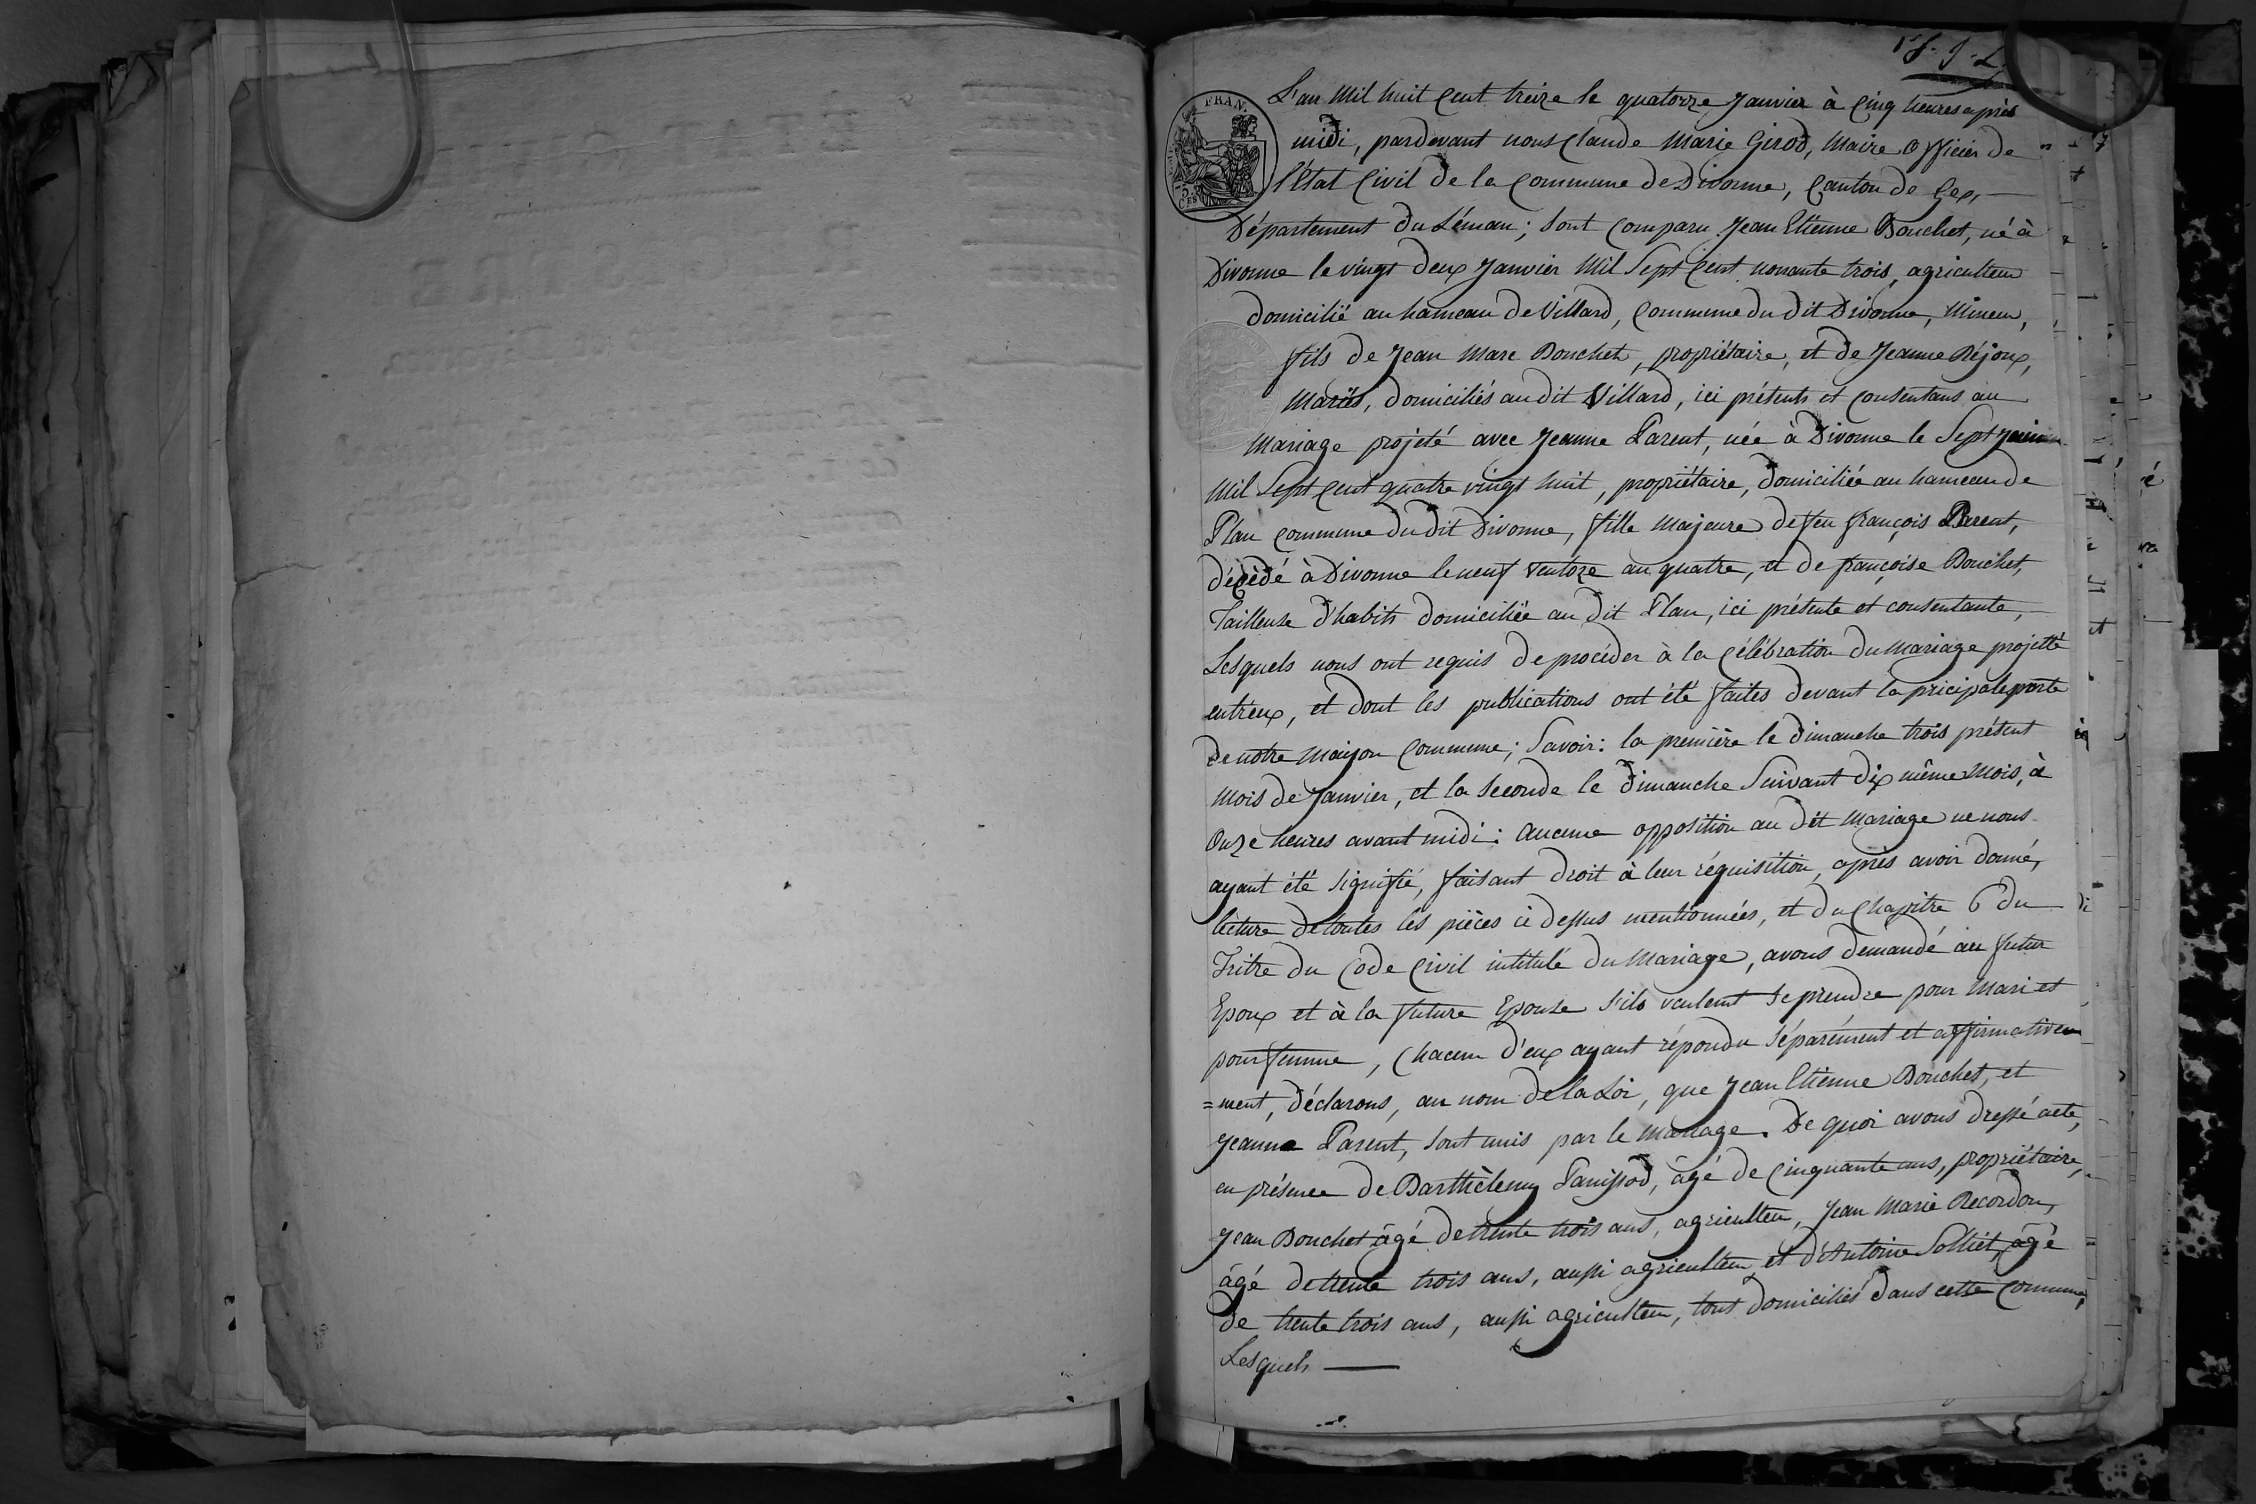 L'an Mil huit Cent treize le quatorze Janvier à Cinq heures après
midi, pardevant nous Claude Marie Girod, Maire Officier de
l'État Civil de la Commune de Divonne, Canton de Gex,
Département du Léman; sont Comparu Jean Etienne Bouchet, né à
Divonne le vingt deux Janvier Mil Sept Cent nonante trois, agriculteur
domicilié au hameau de Villard, Commune du dit Divonne, Mineur,
fils de Jean Marc Bouchet, propriétaire, et de Jeanne Réjoux,
Mariés, domiciliés au dit Villard, ici présents et consentans au
Mariage projeté avec Jeanne Parent, née à Divonne le Sept
Mil Sept Cent quatre vingt huit, propriétaire, domiciliée au hameau de
Plan Commune du dit Divonne, fille Majeure de feu françois Parent,
décédé à Divonne le neuf Ventoze an quatre, et de françoise Bouchet,
Tailleuse d'habits domiciliée au dit Plan, ici présente et consentante,
Lesquels nous ont requis de procéder à la Célébration du Mariage projetté
entreux, et dont les publications ont été faites devant la pricipale porte
de notre Maison Commune; Savoir: la première le dimanche trois présent
Mois de Janvier, et la seconde le dimanche Suivant dix même Mois, à
Onze heures avant midi: Aucune opposition au dit Mariage ne nous
ayant été signifié, faisant droit à leur réquisition, après avoir donné,
lecture de toutes les pièces ci dessus mentionnées, et du Chapitre 6 du
Tritre du Code Civil intitulé du Mariage, avons demandé au futur
Epoux et à la future Epouse s'ils veulent se prendre pour Mari et
pour femme, Chacun d'eux ayant répondu séparément et affirmativem
=ment, déclarons, au nom de la Loi, que Jean Etienne Bouchet, et
Jeanne Parent, sont unis par le Mariage. De quoi avons dressé acte,
en présence de Barthélemy Panissod, âgé de Cinquante ans, propriétaire,
Jean Bouchet âgé de trente trois ans, agriculteur, Jean Marie Recordon,
âgé de trente trois ans, aussi agriculteur, et d'Antoine Solliet, âgé
de trente trois ans, aussi agriculteur, tous domiciliés dans cette Commune,
Lesquels
FRAN.
CES